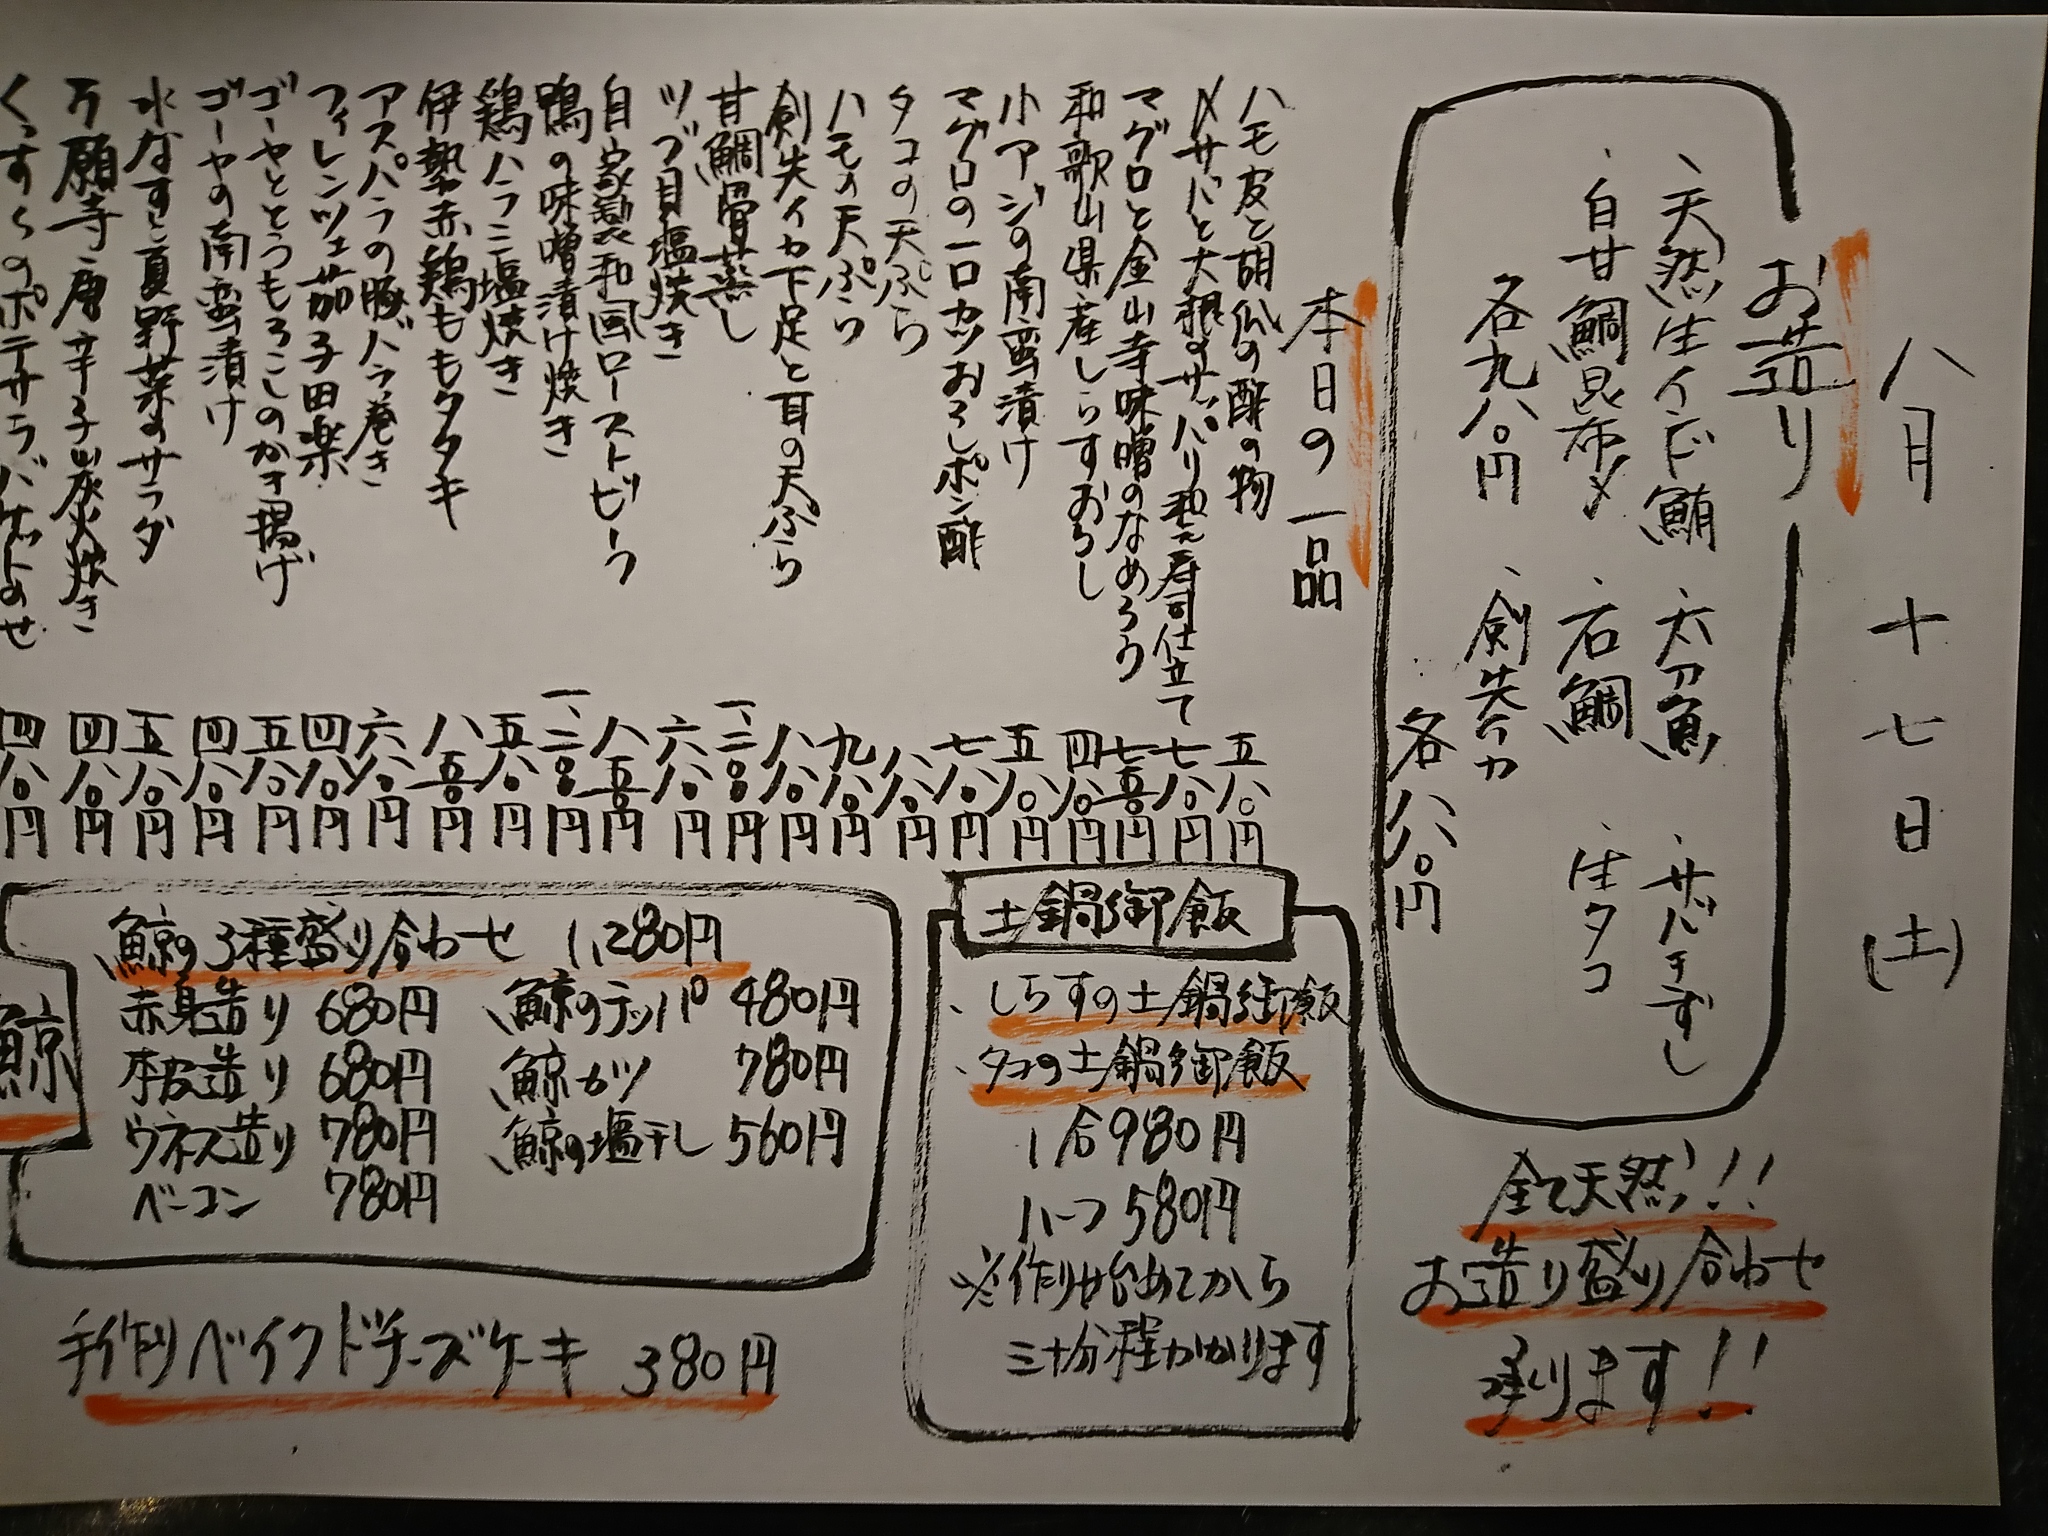 八月十七日(土)
お造り
、天然生インド鮪 、太刀魚 、サバきずし
、白甘鯛昆布〆 、石鯛 、生タコ
各九八〇円 、剣先イカ
各八八〇円
全て天然!!
お造り盛り合わせ
承ります!!
本日の一品
ハモ皮と胡瓜の酢の物 五八〇円
〆サバと大根のサッパリ和え寿司仕立て 七八〇円
マグロと金山寺味噌のなめろう 七五〇円
和歌山県産しらすおろし 四八〇円
小アジの南蛮漬け 五八〇円
マグロの一口カツおろしポン酢 七八〇円
タコの天ぷら 八八〇円
ハモの天ぷら 九八〇円
剣先イカ下足と耳の天ぷら 八八〇円
甘鯛骨蒸し 一、二〇〇円
ツブ貝塩焼き 六八〇円
自家製和風ローストビーフ 八五〇円
鴨の味噌漬け焼き 一、二〇〇円
鶏ハラミ塩焼き 五八〇円
伊勢赤鶏ももタタキ 八五〇円
アスパラの豚バラ巻き 六八〇円
フィレンツェ茄子田楽 四八〇円
ゴーヤととうもろこしのかき揚げ 五八〇円
ゴーヤの南蛮漬け 四八〇円
水なすと夏野菜のサラダ 五八〇円
万願寺唐辛子炭火焼き 四八〇円
くっすんのポテサラバゲットのせ 四八〇円
土鍋御飯
、しらすの土鍋御飯
、タコの土鍋御飯
1合980円
ハーフ580円
※作り始めてから
三十分程かかります
鯨
鯨の3種盛り合わせ 1,280円
赤身造り 680円 鯨のテッパ 480円
本皮造り 680円 鯨カツ 780円
ウネス造り 780円 鯨の塩干し 560円
ベーコン 780円
手作りベイクドチーズケーキ 380円